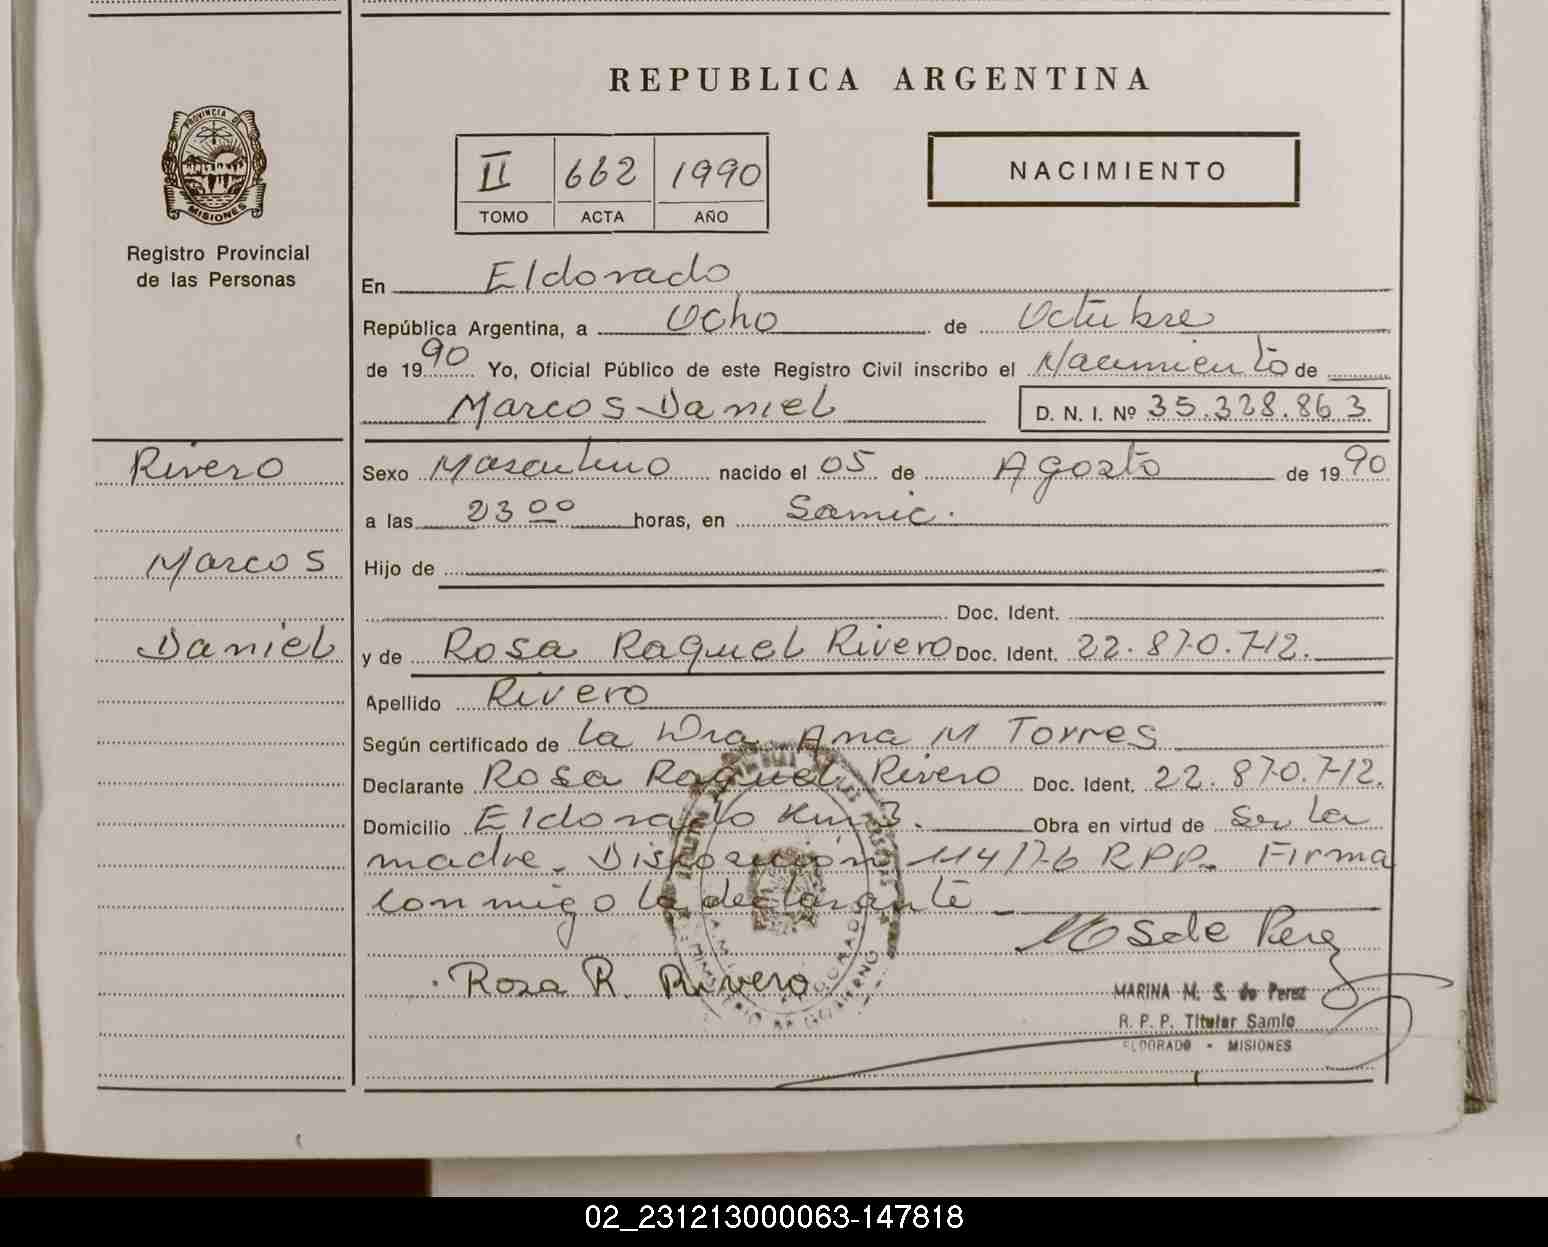 REPUBLICA ARGENTINA
PROVINCIA DE
MISIONES
Registro Provincial
de las Personas
II 662 1990
TOMO ACTA AÑO
NACIMIENTO
En Eldorado
República Argentina, a Ocho de Octubre
de 1990 Yo, Oficial Público de este Registro Civil inscribo el Nacimiento de
Marcos Daniel D. N. I. Nº 35.328.863
Rivero
Marcos
Daniel
Sexo Masculino nacido el 05 de Agosto de 1990
a las 23 00 horas, en Samic.
Hijo de
Doc. Ident.
y de Rosa Raquel Rivero Doc. Ident. 22.870.712.
Apellido Rivero
Según certificado de la Dra Ana M Torres
Declarante Rosa Raquel Rivero Doc. Ident. 22.870.712.
Domicilio Eldorado Km 3. Obra en virtud de Ser la
madre. Disposición 114/76 RPP. Firma
conmigo la declarante
Rosa R. Rivero
MARINA M. S. de Perez
R. P. P. Titular Samic
ELDORADO - MISIONES
02_231213000063-147818